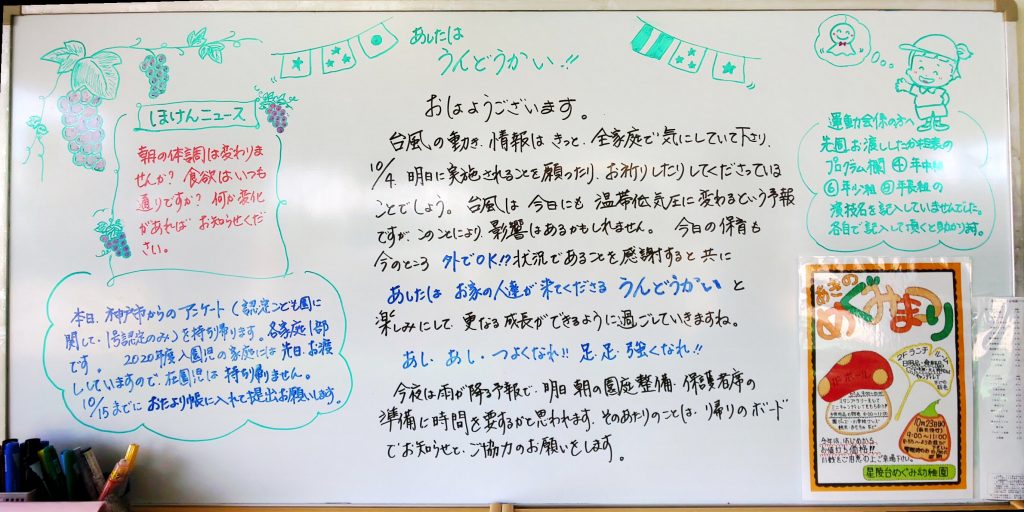 あしたは
うんどうかい!!
ほけんニュース
朝の体調は変わりま
せんか? 食欲はいつも
通りですか? 何か変化
があれば お知らせくだ
さい。
本日、神戸市からのアンケート（認定こども園に
関して・1号認定のみ）を持ち帰ります。各家庭1部
です。 2020年度入園児の家庭には先日、お渡
ししていますので、在園児は 持ち帰りません。
10/15までに おたより帳に入れて提出お願いします。
おはようございます。
台風の動き、情報は きっと、全家庭で気にしていて下さり、
10/4 明日に実施されることを願ったり、お祈りしたりしてくださっている
ことでしょう。 台風は 今日にも 温帯低気圧に変わるという予報
ですが、このことにより、影響はあるかもしれません。 今日の保育も
今のところ 外でOK!? 状況であることを感謝すると共に
あしたは お家の人達が来てくださる うんどうかい と
楽しみにして、更なる成長ができるように過ごしていきますね。
あし・あし・つよくなれ!! 足・足・強くなれ!!
今夜は雨が降る予報で、明日 朝の園庭整備、保護者席の
準備に時間を要するかと思われます。そのあたりのことは、帰りのボード
でお知らせと、ご協力のお願いをします。
運動会係の方へ
先週お渡しした
プログラム欄 ④年中組
⑥年少組 年長組の
演技名を記入していませんでした。
各自で記入して頂くと助かります。
あきの
めぐみまつり
2Fランチルーム
10月23日
9:00〜11:00
今年は、はじめから
お値打ち価格!!
星陵台めぐみ幼稚園